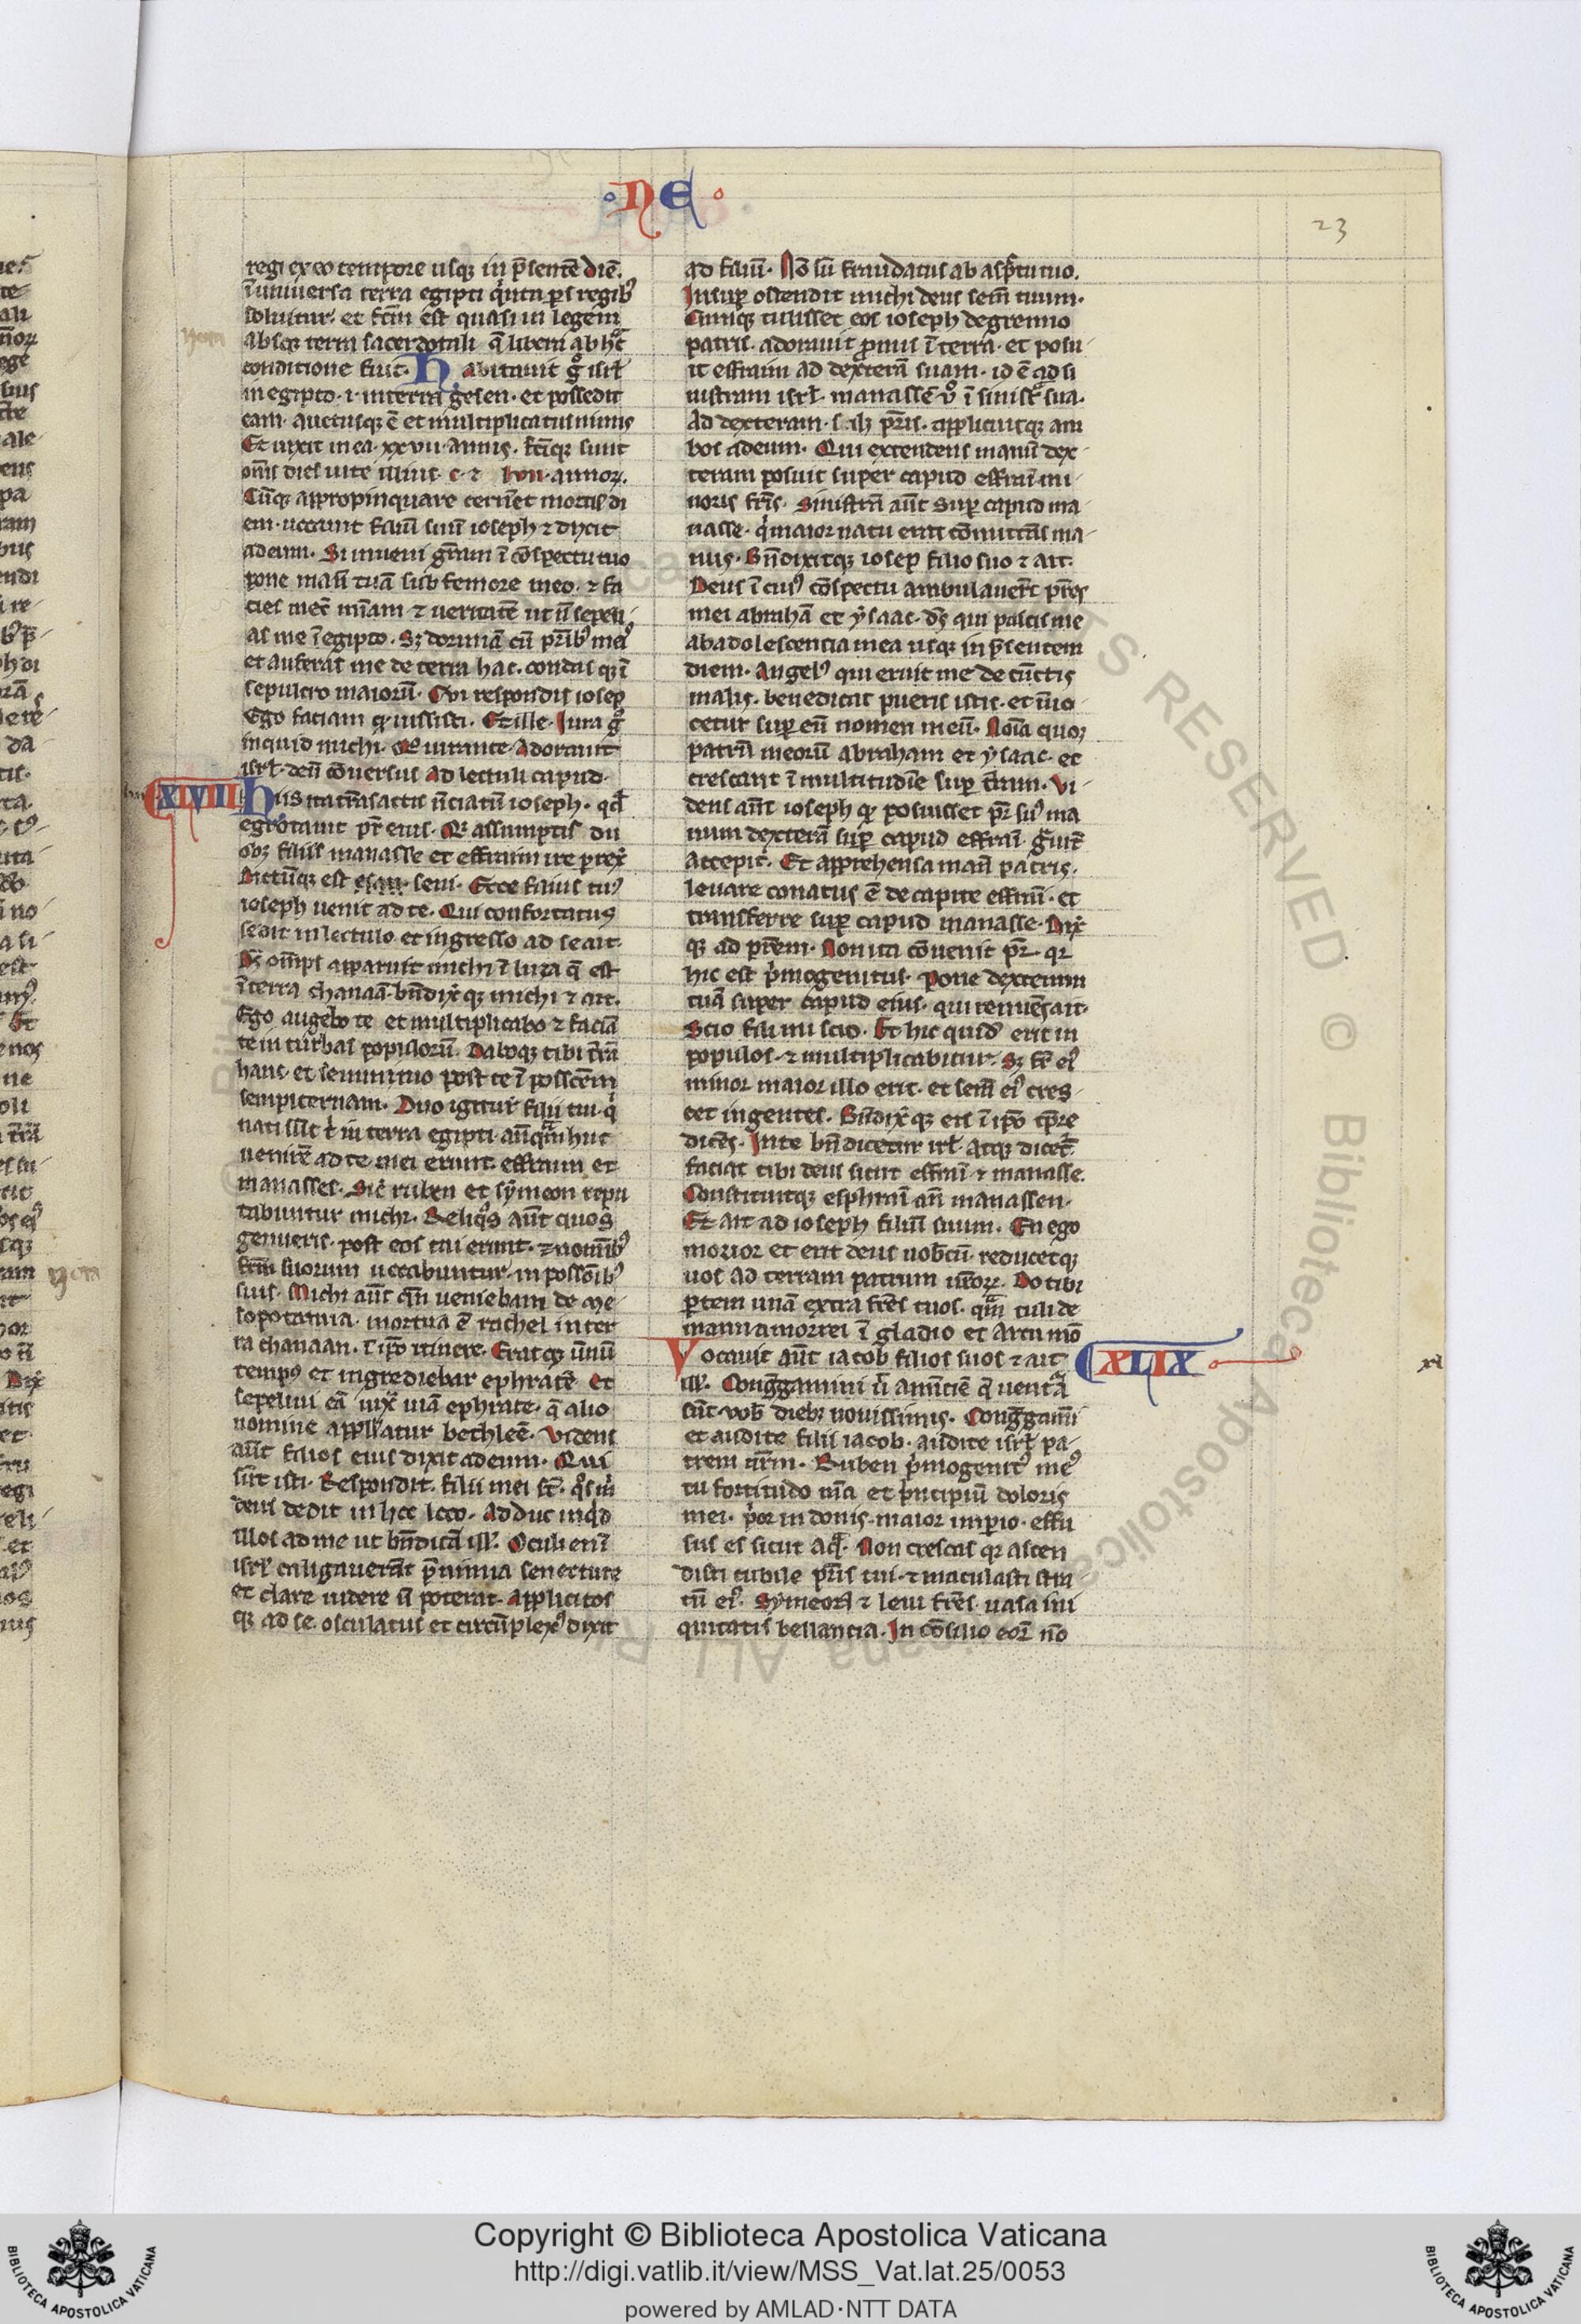 · N E ·
23
regi ex eo tempore usqꝫ in p̄sentē diē.
ī uniuersa terra egipti q̇nta ꝑs regibꝰ
soluitur. et fcm̄ est quasi in legem
absqꝫ terra sacerdotali q̄ libera ab hͣc
conditione fuit. Habitauit gͦ isrł
in egipto .i. in terra gesen. et possedit
eam. auctusqꝫ ē et multiplicatus nimis
Et uixit in ea .xxvii. annis. fctiqꝫ sunt
om̄s dies uite illius .c. ⁊ .xlvii. annoꝝ.
Cūqꝫ appropinquare cerneret mortis di
em. uocauit filiū suū ioseph ⁊ dixit
ad eum. Si inueni gr̄am ī ꝯspectu tuo
pone manū tuā sub femore meo. ⁊ fa
cies mecū mīam ⁊ ueritatē ut nō sepeli
as me ī egipto. Sꝫ dormiā cū pr̄ibꝰ meis
et auferas me de terra hac. condasqꝫ ī
sepulcro maiorū. Cui respondit iosep
Ego faciam qꝫ iussisti. Et ille. Iura gͦ
inquid michi. Quo iurante. adorauit
isrł. deū ꝯuersus ad lectuli capud.
XLVIII
Hiis ita trāsactis nūciatū ioseph. qd̄
egrotaret pr̄ eius. Qui assumptis du
obꝫ filiis manasse et effraim ire prexit
Dictūqꝫ est seni. Ecce filius tuꝰ
ioseph uenit ad te. Qui confortatus
sedit in lectulo. et ingresso ad se ait.
Ds̄ om̄ps apparuit michi ī luza q̄ est
ī terra chanaā. bn̄dixitqꝫ michi ⁊ ait.
Ego augebo te et multiplicabo ⁊ faciā
te in turbas populorū. Daboqꝫ tibi trā
hanc et semini tuo post te ī possessionem
sempiternam. Duo igitur filii tui. q̇
nati sūt t̄ in terra egipti anteq̄m huc
uenirē ad te mei erunt. effraim et
manasses. Sic̄ ruben et symeon repu
tabuntur michi. Reliqͦs aūt quos
genueris. post eos tui erunt. ⁊ nomībꝰ
frm̄ suorum uocabuntur. in possōibꝰ
suis. Michi aūt qn̄ ueniebam de me
sopotamia. mortua ē rachel in ter
ra chanaan. ī ip̄o itinere. Eratqꝫ uernū
tempꝰ et ingrediebar ephratē. et
sepeliui eā iuxͣ uiā ephrate. q̄ alio
nomine appellatur bethleē. Videns
aūt filios eius dixit ad eum. Qui
sūt isti. Respondit. filii mei st̄. qͦs m̄
deus dedit in hoc loco. Adduc inqͥd
illos ad me ut bn̄dicā illis. Oculi enī
isrł caligauerāt p̄ nimia senectute
et clare uidere nō poterat. Applicitos
qꝫ ad se. osculatus et circūplexꝰ dixit
ad filiū. Nō sū fraudatus ab aspectu tuo.
Insuꝑ ostendit michi deus sem̄ tuum.
Cumqꝫ tulisset eos ioseph de gremio
patris. adorauit pronus ī terra. et posu
it effraim ad dexterā suam. id ē ad si
nistram isrł. manassē ū ī sinistra sua.
Ad dexteram. s. pr̄is. applicuitqꝫ am
bos ad eum. Qui extendens manū dex
teram posuit super capud effraī mi
noris fr̄is. Sinistrā aūt suꝑ capud ma
nasse. qͥ maior natu erat cōmutās ma
nus. Bn̄dixitqꝫ iosep filio suo ⁊ ait.
Deus ī cuiꝰ ꝯspectu ambulauerūt pr̄es
mei abrahā et ysaac. ds̄ qui pascit me
ab adolescentia mea usqꝫ in p̄sentem
diem. Angelꝰ qui eruit me de cūctis
malis. benedicat pueris istis. et inuo
cetur suꝑ eū nomen meū. Noīa quoqꝫ
patrū meorū abraham et ysaac. et
crescant ī multitudīe suꝑ terram. Vi
dens aūt ioseph qꝫ posuisset pr̄ suꝰ ma
num dexterā suꝑ capud effraī. g̈uit̄
accepit. Et apprehensa manū patris.
leuare conatus ē de capite effraī. et
transferre suꝑ capud manasse. Dixit
qꝫ ad pr̄em. Non ita ꝯuenit pr̄. qꝛ
hic est ṗmogenitus. Pone dexteram
tuā super capud eius. qui renuens ait.
Scio fili mi scio. Et hic quidē erit in
populos. ⁊ multiplicabitur. Sꝫ fr̄ eiꝰ
minor maior illo erit. et sem̄ eiꝰ cres
cet in gentes. Bn̄dixitqꝫ eis ī ip̄o tꝑre
dicēs. In te bn̄dicetur isrł. atqꝫ dicet̄.
faciat tibi deus sicut effraī ⁊ manasse.
Constituitqꝫ esphraī an̄ manassen.
Et ait ad ioseph filiū suum. En ego
morior et erit deus uobcū. reducetqꝫ
uos ad terram patrum ur̄oꝝ. Do tibi
ꝑtem unā extra fr̄es tuos. quā tuli de
manu amorrei ī gladio et arcu mō
XLIX
Vocauit aūt iacob filios suos ⁊ ait
ill. Congregamini ut anūtiē q̄ uentͣa
sūt uob̄ diebꝫ nouissimis. Congregami
et audite filii iacob. audite isrł pa
trem ur̄m. Ruben ṗmogenitꝰ meꝰ
tu fortitudo m̄a et principiū doloris
mei. ṗor in donis. maior imperio. effu
sus es sicut aq̄. Non crescas qꝛ ascen
disti cubile pr̄is tui. ⁊ maculasti stra
tū eiꝰ. Symeon ⁊ leui fr̄es. uasa ini
quitatis bellantia. In ꝯsilio eorū nō
Copyright © Biblioteca Apostolica Vaticana
http://digi.vatlib.it/view/MSS_Vat.lat.25/0053
powered by AMLAD·NTT DATA
BIBLIOTECA APOSTOLICA VATICANA
BIBLIOTECA APOSTOLICA VATICANA